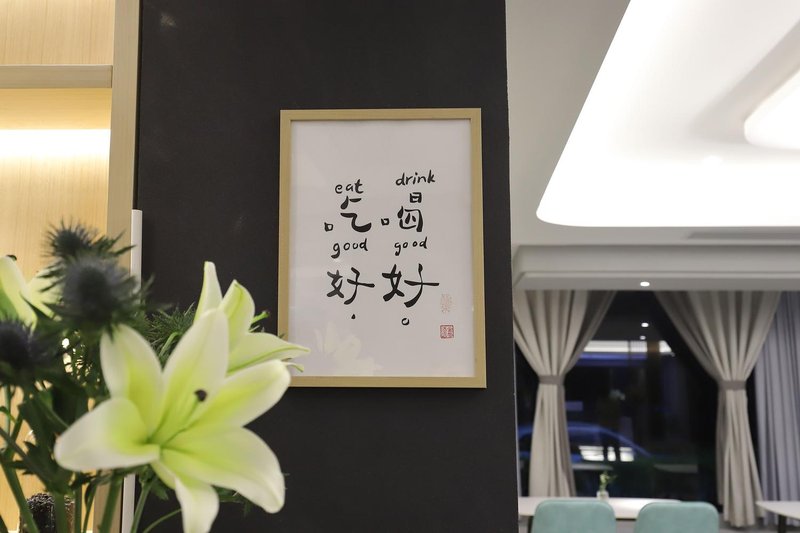 eat drink
吃 喝
good good
好 好